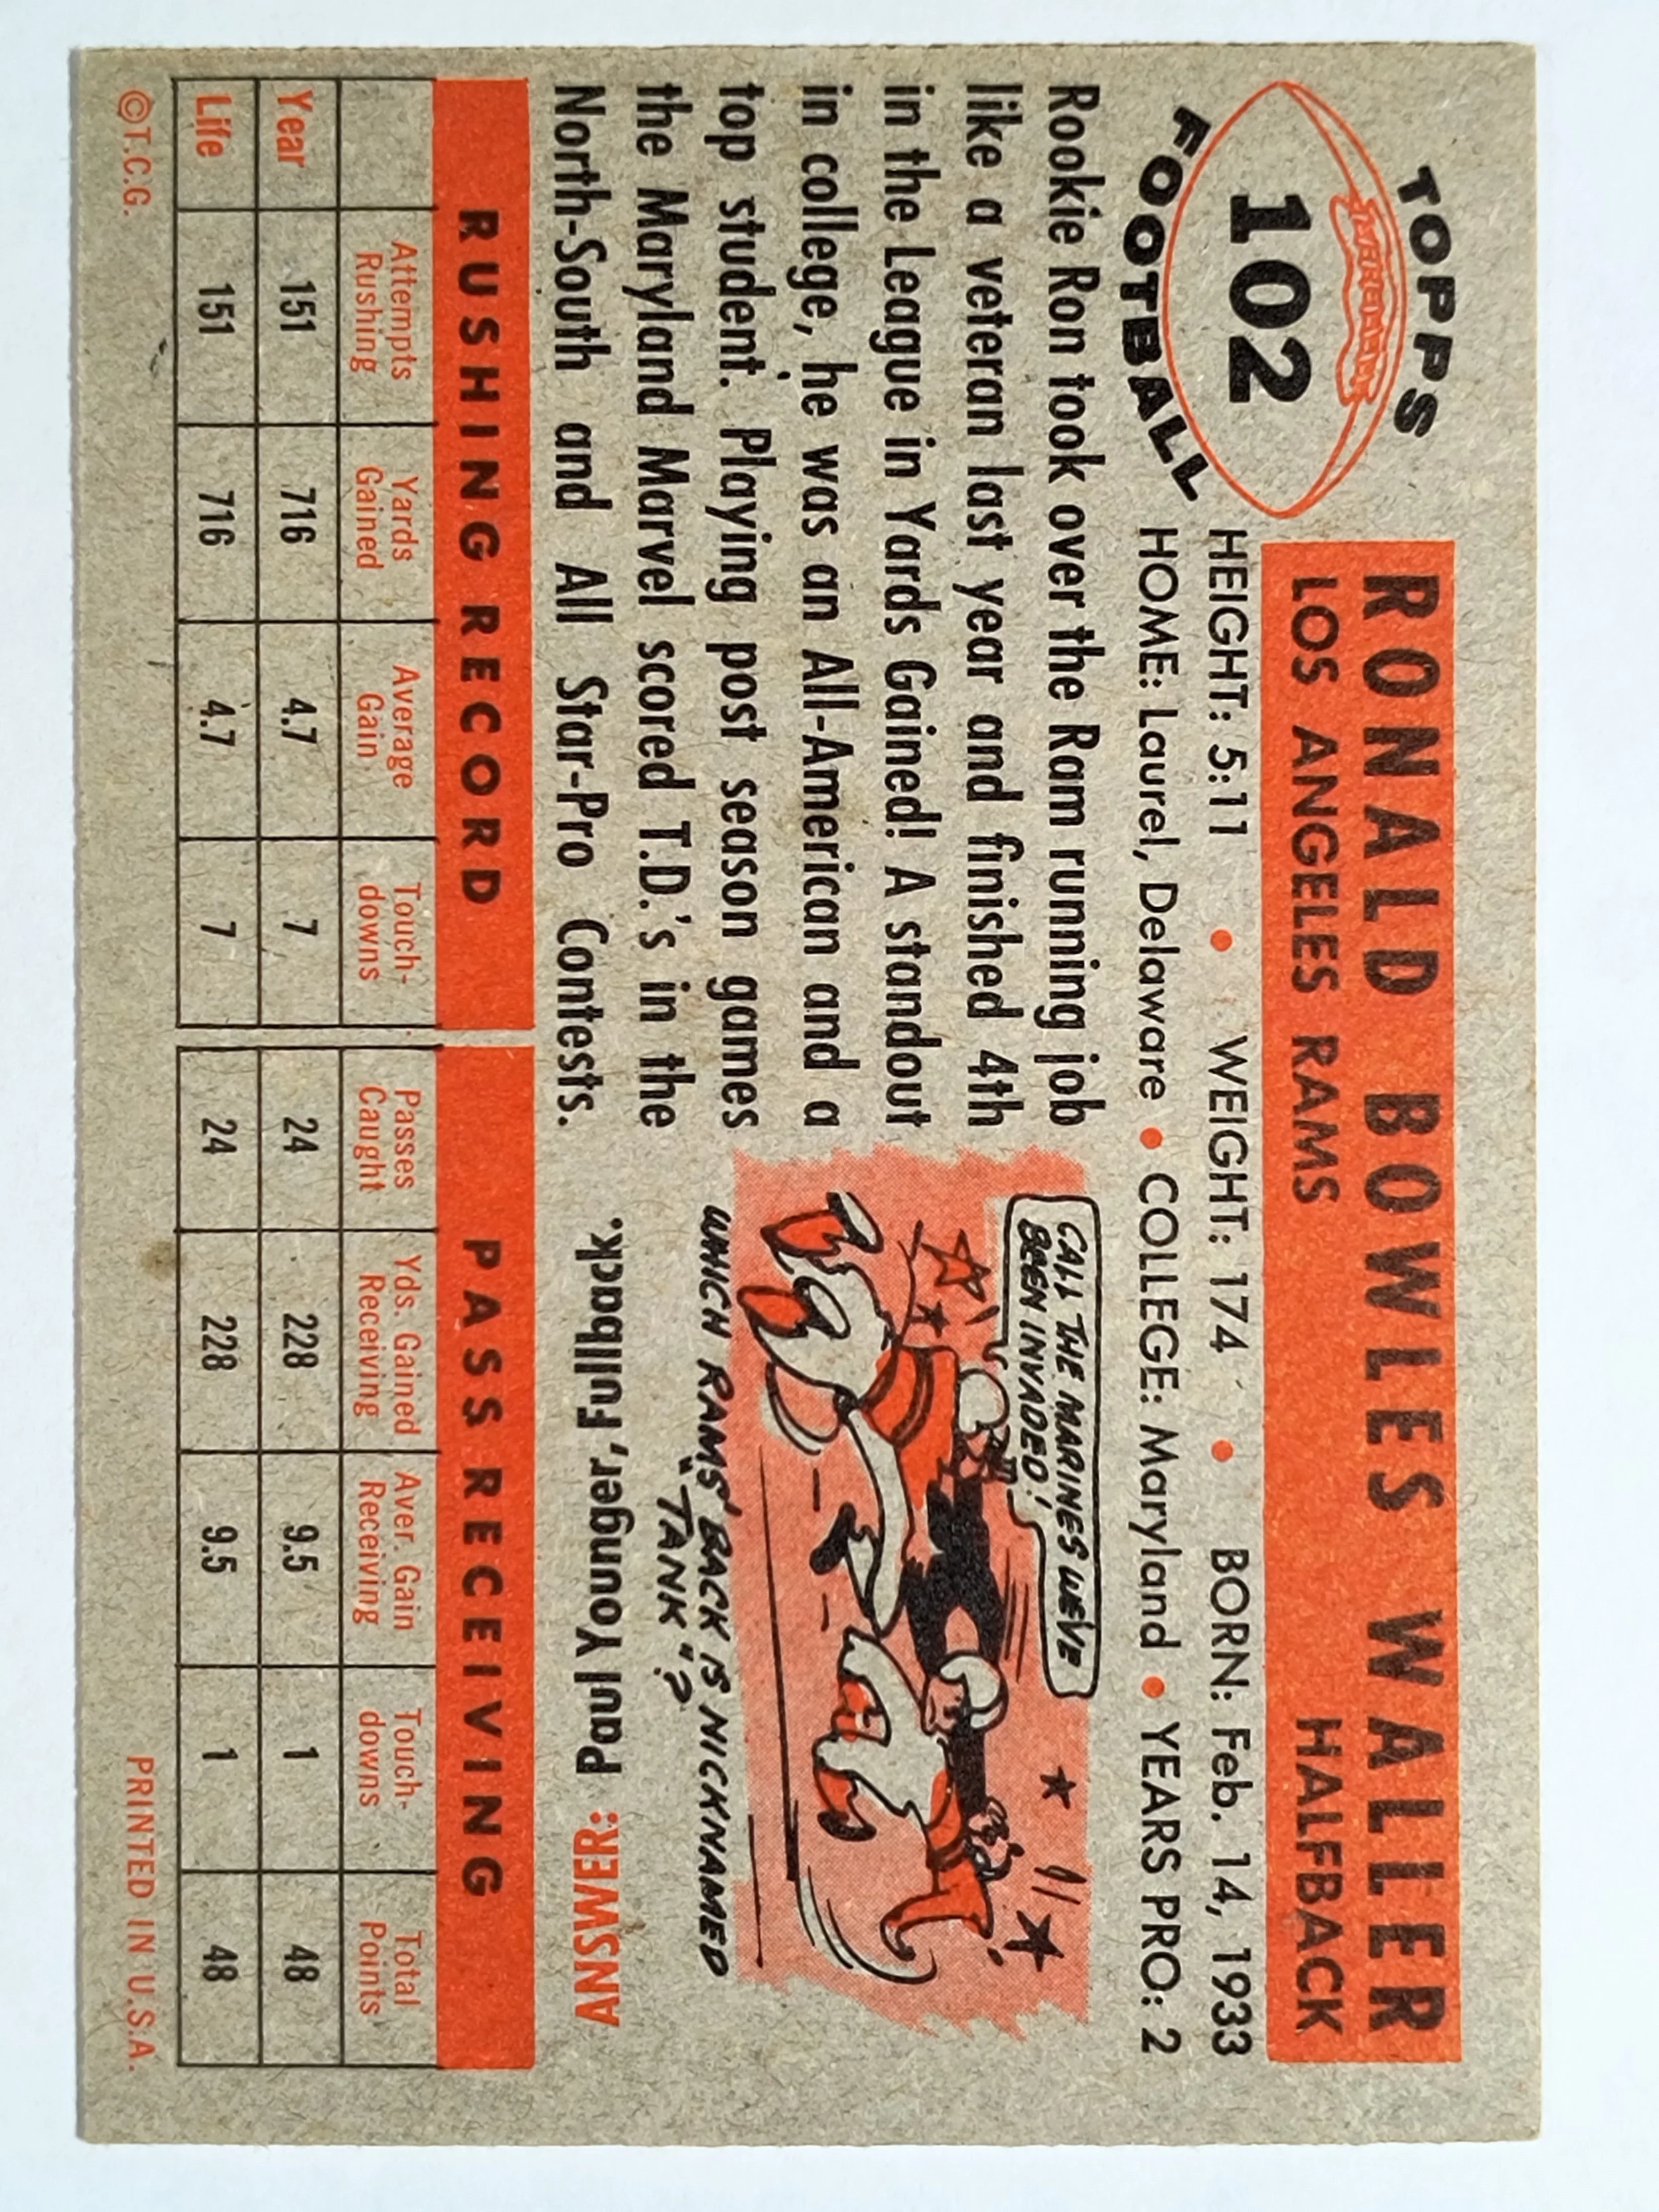 TOPPS
102
FOOTBALL
RONALD BOWLES WALLER
LOS ANGELES RAMS HALFBACK
HEIGHT: 5:11 • WEIGHT: 174 • BORN: Feb. 14, 1933
HOME: Laurel, Delaware • COLLEGE: Maryland • YEARS PRO: 2
Rookie Ron took over the Ram running job
like a veteran last year and finished 4th
in the League in Yards Gained! A standout
in college, he was an All-American and a
top student. Playing post season games
the Maryland Marvel scored T.D.'s in the
North-South and All Star-Pro Contests.
CALL THE MARINES WE'VE
BEEN INVADED!
WHICH RAMS' BACK IS NICKNAMED
"TANK"?
ANSWER: Paul Younger, Fullback.
RUSHING RECORD PASS RECEIVING
Attempts Rushing Yards Gained Average Gain Touch-downs Passes Caught Yds. Gained Receiving Aver. Gain Receiving Touch-downs Total Points
Year 151 716 4.7 7 24 228 9.5 1 48
Life 151 716 4.7 7 24 228 9.5 1 48
©T.C.G. PRINTED IN U.S.A.